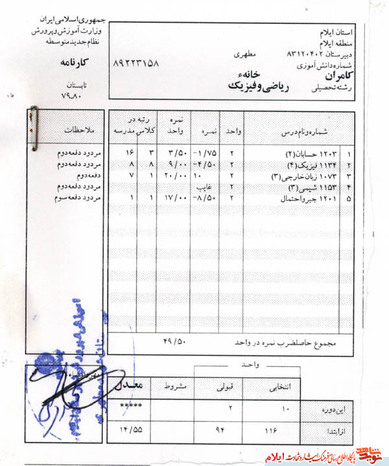 جمهوری اسلامی ایران
وزارت آموزش و پرورش
نظام جدید متوسطه
کارنامه
تابستان
۷۹-۸۰
استان ایلام
منطقه ایلام
دبیرستان ۸۳۱۲۰۴۰۲ مطهری
شماره دانش آموزی ۸۹۲۲۳۱۵۸
کامران خانه
رشته تحصیلی ریاضی و فیزیک
شماره و نام درس واحد نمره نمره واحد رتبه در کلاس مدرسه ملاحظات
۱ ۱۲۰۳ حسابان (۲) ۲ -۱/۷۵ ۳/۵۰ ۳ ۱۶ مردود دفعه دوم
۲ ۱۱۳۴ فیزیک (۴) ۲ -۴/۵۰ ۹/۰۰ ۸ ۸ مردود دفعه دوم
۳ ۱۰۷۳ زبان خارجی (۳) ۲ ۱۰ ۲۰/۰۰ ۱ ۷ دفعه دوم
۴ ۱۱۵۳ شیمی (۳) ۲ غایب مردود دفعه دوم
۵ ۱۲۰۱ جبر و احتمال ۲ -۸/۵۰ ۱۷/۰۰ ۱ ۱ مردود دفعه سوم
مجموع حاصلضرب نمره در واحد ۴۹/۵۰
واحد
انتخابی قبولی مشروط معدل
این دوره ۱۰ ۲
از ابتدا ۱۱۶ ۹۴ ۱۴/۵۵
ایلام